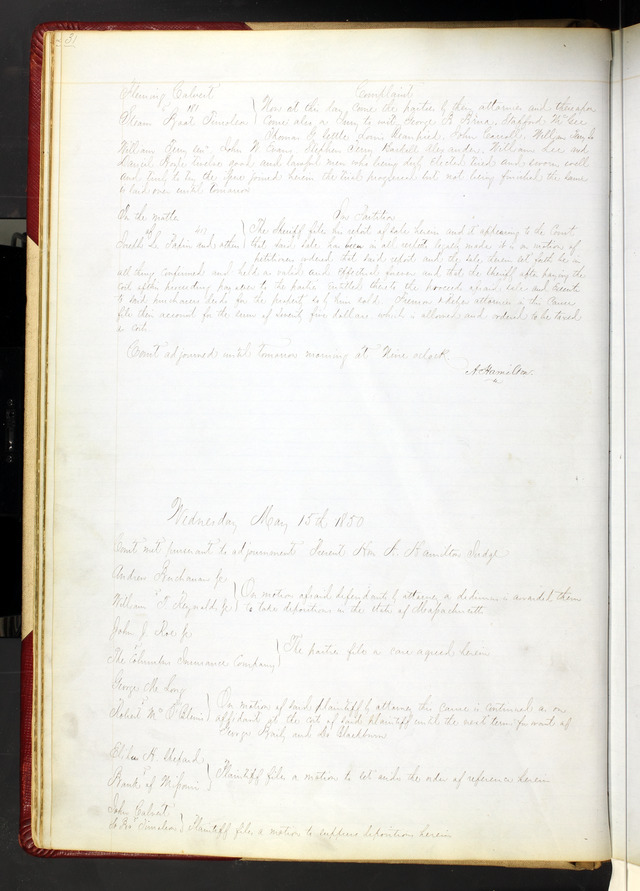 31
Fleming Calvert Complaint
vs 181 Now at this day come the parties by their attorneys and thereupon
Steam Boat Timoleon Come also a Jury to wit, George R. Stafford McGee
Thomas G. Settle, Louis John Carroll, William
William John W Evans, Stephen Barkell Alexander, William Lee and
Daniel twelve good and lawful men who being duly elected tried and sworn well
and truly to try the issue joined herein the trial progressed but not being finished the same
is laid over until tomorrow
In the matter Par Partition
of 40 The Sheriff files his report of sale herein and it appearing to the Court
Joseph L. Papin and others that said sale has been in all respects legally made it is on motion of
petitioners ordered that said report and the sale herein set forth be in
all things confirmed and held as valid and effectual forever and that the Sheriff after paying the
costs of this proceeding pay over to the parties entitled thereto the proceeds of said sale and execute
to said purchasers deeds for the property so by him sold. attorneys in this cause
file their account for the sum of Seventy five dollars which is allowed and ordered to be taxed
as costs.
Court adjourned until tomorrow morning at Nine oclock.
A. Hamilton.
Wednesday May 15th 1850
Court met pursuant to adjournment Present Hon A. Hamilton Judge
Andrew Buchanan Jr
vs On motion of said defendants by attorney a dedimus is awarded them
William T. Reynolds Jr to take depositions in the State of Massachusetts
John J. Roe Jr
vs The parties file a case agreed herein
The Columbus Insurance Company
George McLong
vs On motion of said plaintiff by attorney this cause is continued as on
Robert M. affidavit at the cost of said plaintiff until the next term for want of
George and Blackburn
Elihu H. Shepard
vs Plaintiff files a motion to set aside the order of reference herein
Bank of Missouri
John Calvert
vs
S. Bt Timoleon Plaintiff files a motion to suppress depositions herein